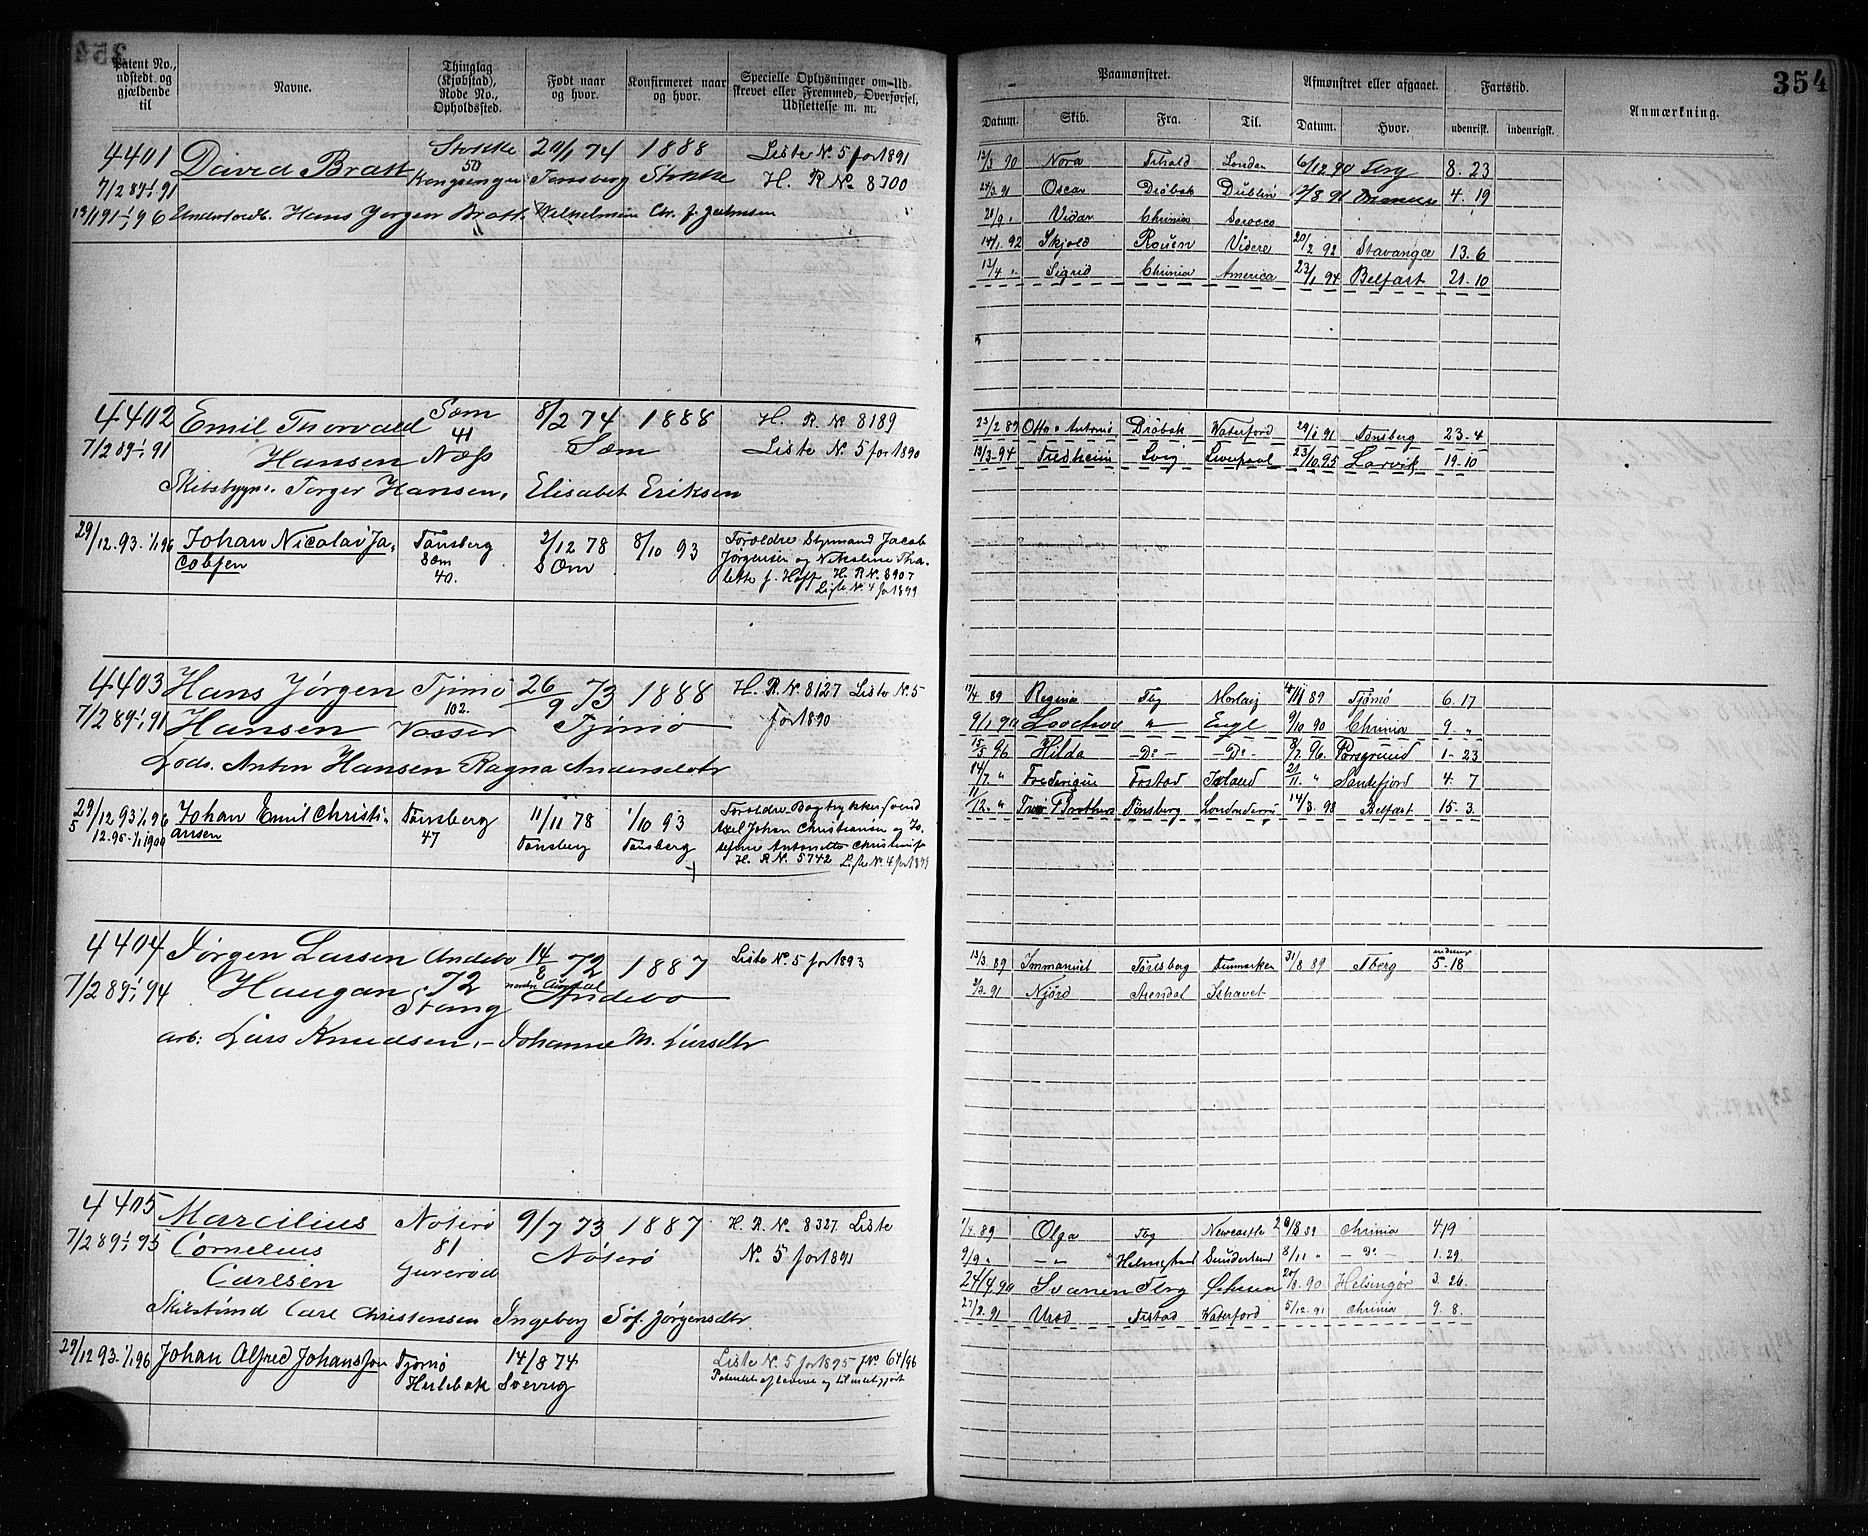 354
Patent No., udstedt og gjældende til
Navne.
Thinglag (Kjøbstad), Rode No., Opholdssted.
Født naar og hvor.
Konfirmeret naar og hvor.
Specielle Oplysninger om Udskrevet eller Fremmed, Overførsel, Udslettelse m. m.
4401 David Bratt Stokke 20/1 74 1888 Liste No. 5 for 1891
7/2 89-1/1 91 50 Tønsberg Stokke H. R No. 8700
Hans Jørgen Bratt Wilhelmine Chr. f.
4402 Emil Thorvald Sem 8/2 74 1888 H. R No 8189
7/2 89-1/1 91 Hansen 41 Næss Sem Liste No. 5 for 1890
Skibsbygn. Torger Hansen, Elisabet Eriksen
29/12 93-1/1 96 Johan Nicolai Ja- Tønsberg 2/12 78 8/10 93 Forældre Styrmand Jacob
cobsen Sem 40. Sem Jørgensen og Nikoline Tha-
f. Hoff H. R No. 8907
Liste No. 4 for 1899
4403 Hans Jørgen Tjømø 26/9 73 1888 H. R. No 8127 Liste No. 5
7/2 89-1/1 91 Hansen 102. Vasser Tjømø for 1890
Lods. Anton Hansen Ragna Andersdatr
29/12 93 1/1 96 Johan Emil Christi- Tønsberg 11/11 78 1/10 93 Forældre Bogtrykker
5/12.95-1/1 1900 ansen 47 Tønsberg Tønsberg Axel Johan Christiansen og Jo-
sefine Antonette
H. R No. 5742 Liste No. 4 for 1899
4404 Jørgen Larsen Andebo 14/8 72 1887 Liste No. 5 for 1893
7/2 89-1/1 94 Haugan 72 Stang Andebo
arb: Lars Knudsen, - Johanne M. Larsdtr
4405 Marcilius Nøterø 9/7 73 1887 H. R. No. 8327. Liste
7/2 89-1/1 95 Cornelius 81 Nøterø No. 5 for 1891
Carlsen
Carl Christensen Ingeborg Sof. Jørgensdtr
29/12 93-1/1 96 Johan Alfred Johanssen Tjømø 14/8 74 Liste No. 5 for 1895 JNo 64/96
Hulebak Sverrig
354
Paamønstret.
Afmønstret eller afgaaet.
Fartstid.
Anmærkning.
Datum. Skib. Fra. Til. Datum. Hvor. udenrisk. indenrigsk.
12/3 90 Nora Frhald London 6/12 90 Tbrg 8. 23
24/3 91 Oscar Drøbak Dublin 17/8 91 4. 19
20/9 " Vidar Chrinia
14/1. 92 Skjold Rouen Videre 20/2 92 Stavanger 13. 6
13/4 " Sigrid Chrinia America 23/1 94 Belfast 21. 10
23/2 89 Otto & Antonie Drøbak Waterford 29/1 91 Tønsberg 23-4
19/3-94 Fredheim Liverpool 23/10 95 Larvik 19-10
17/4 89 Regina Tbg 89 Tjømø 6. 17
9/1 90 " Engl 9/10 90 Chrinia 9. "
15/5 96 Hilda - Do - - Do - 8/7 96. Porsgrund 1- 23
14/7 " Frederique Frstad Island 21/11 " Sandefjord 4. 7
11/12. " Two Brothers Tønsberg Londonderry 14/3. 98 Belfast 15. 3
13/3. 89 Immanuel Tønsberg Danmark 31/8 89 Tberg 5-18
3/3. 91 Njörd Arendal Ishavet
7/4. 89 Olga Tbg Newcastle 26/8 89 Chrinia 4 19
9/9 " - " - Sunderland 8/11 " - Do - 1. 29.
24/4 90 Svanen Tbrg 90 Helsingør 3. 26.
27/2. 91 Frstad Waterford 5/12. 91 Chrinia 9. 8.